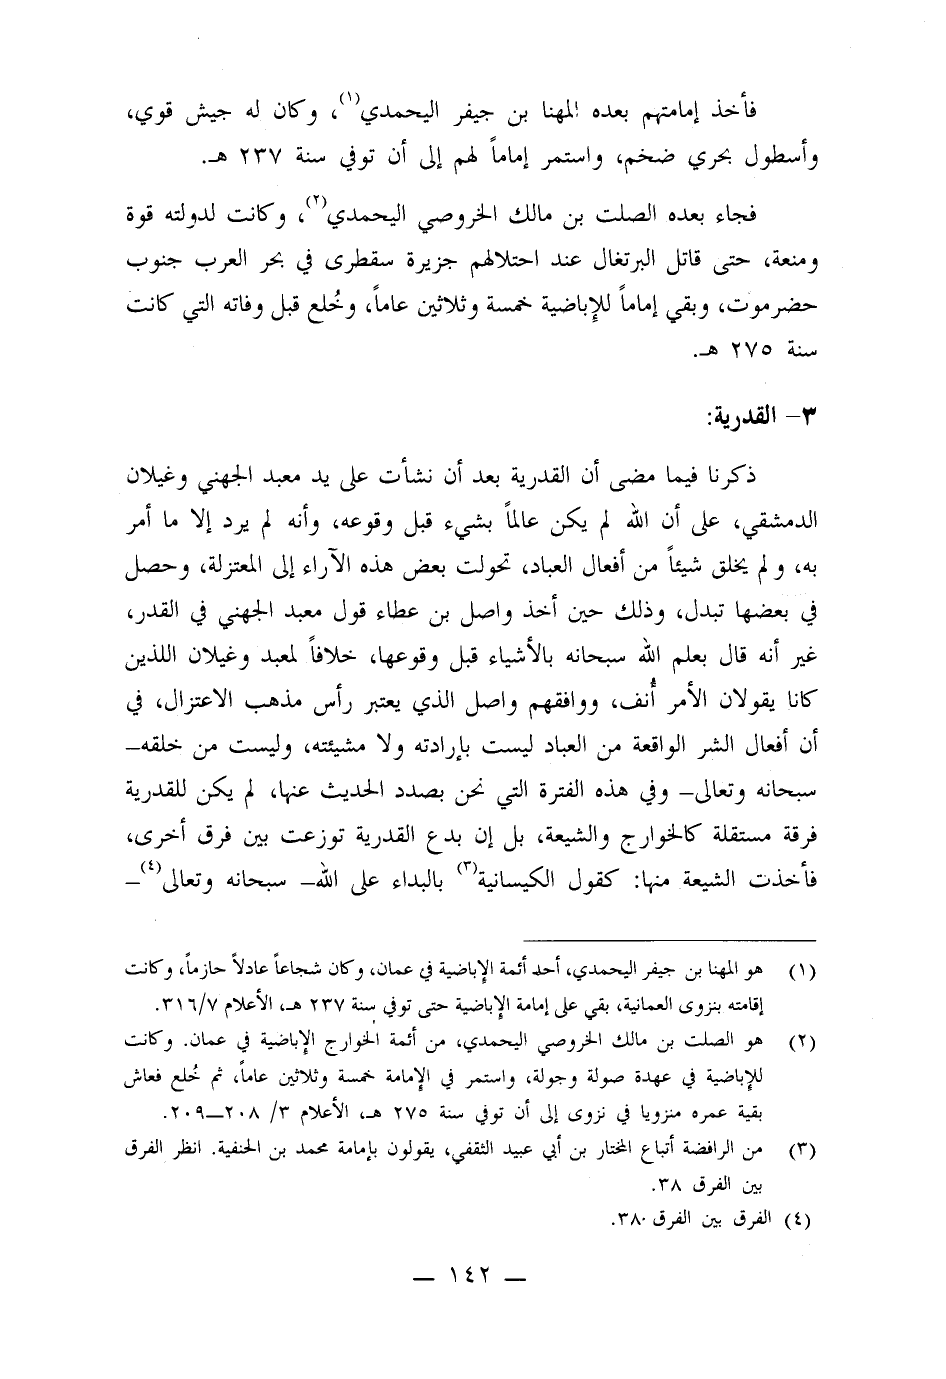 فأخذ إمامتهم بعده المهنا بن جيفر اليحمدي(١)، وكان له جيش قوي،
وأسطول بحري ضخم، واستمر إماماً لهم إلى أن توفي سنة ٢٣٧ هـ.
فجاء بعده الصلت بن مالك الخروصي اليحمدي(٢)، وكانت لدولته قوة
ومنعة، حتى قاتل البرتغال عند احتلالهم جزيرة سقطرى في بحر العرب جنوب
حضرموت، وبقي إماماً للإباضية خمسة وثلاثين عاماً، وخُلع قبل وفاته التي كانت
سنة ٢٧٥ هـ.
٣- القدرية:
ذكرنا فيما مضى أن القدرية بعد أن نشأت على يد معبد الجهني وغيلان
الدمشقي، على أن الله لم يكن عالماً بشيء قبل وقوعه، وأنه لم يرد إلا ما أمر
به، ولم يخلق شيئاً من أفعال العباد، تحولت بعض هذه الآراء إلى المعتزلة، وحصل
في بعضها تبدل، وذلك حين أخذ واصل بن عطاء قول معبد الجهني في القدر،
غير أنه قال بعلم الله سبحانه بالأشياء قبل وقوعها، خلافاً لمعبد وغيلان اللذين
كانا يقولان الأمر أُنف، ووافقهم واصل الذي يعتبر رأس مذهب الاعتزال، في
أن أفعال الشر الواقعة من العباد ليست بإرادته ولا مشيئته، وليست من خلقه–
سبحانه وتعالى– وفي هذه الفترة التي نحن بصدد الحديث عنها، لم يكن للقدرية
فرقة مستقلة كالخوارج والشيعة، بل إن بدع القدرية توزعت بين فرق أخرى،
فأخذت الشيعة منها: كقول الكيسانية(٣) بالبداء على الله– سبحانه وتعالى(٤)–
(١) هو المهنا بن جيفر اليحمدي، أحد أئمة الإباضية في عمان، وكان شجاعاً عادلاً حازماً، وكانت
إقامته بنزوى العمانية، بقي على إمامة الإباضية حتى توفي سنة ٢٣٧ هـ، الأعلام ٣١٦/٧.
(٢) هو الصلت بن مالك الخروصي اليحمدي، من أئمة الخوارج الإباضية في عمان. وكانت
للإباضية في عهدة صولة وجولة، واستمر في الإمامة خمسة وثلاثين عاماً، ثم خُلع فعاش
بقية عمره منزويا في نزوى إلى أن توفي سنة ٢٧٥ هـ، الأعلام ٣/ ٢٠٨–٢٠٩.
(٣) من الرافضة أتباع المختار بن أبي عبيد الثقفي، يقولون بإمامة محمد بن الحنفية. انظر الفرق
بين الفرق ٣٨.
(٤) الفرق بين الفرق ٣٨٠.
— ١٤٢ —